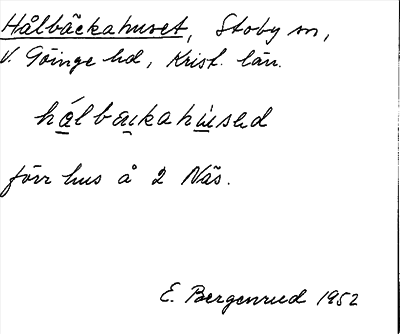 Hålbäckahuset, Stoby sn,
V. Göinge hd, Krist. län.
hålbäkahusəd
förr hus å 2 Näs.
E. Bergenrud 1952